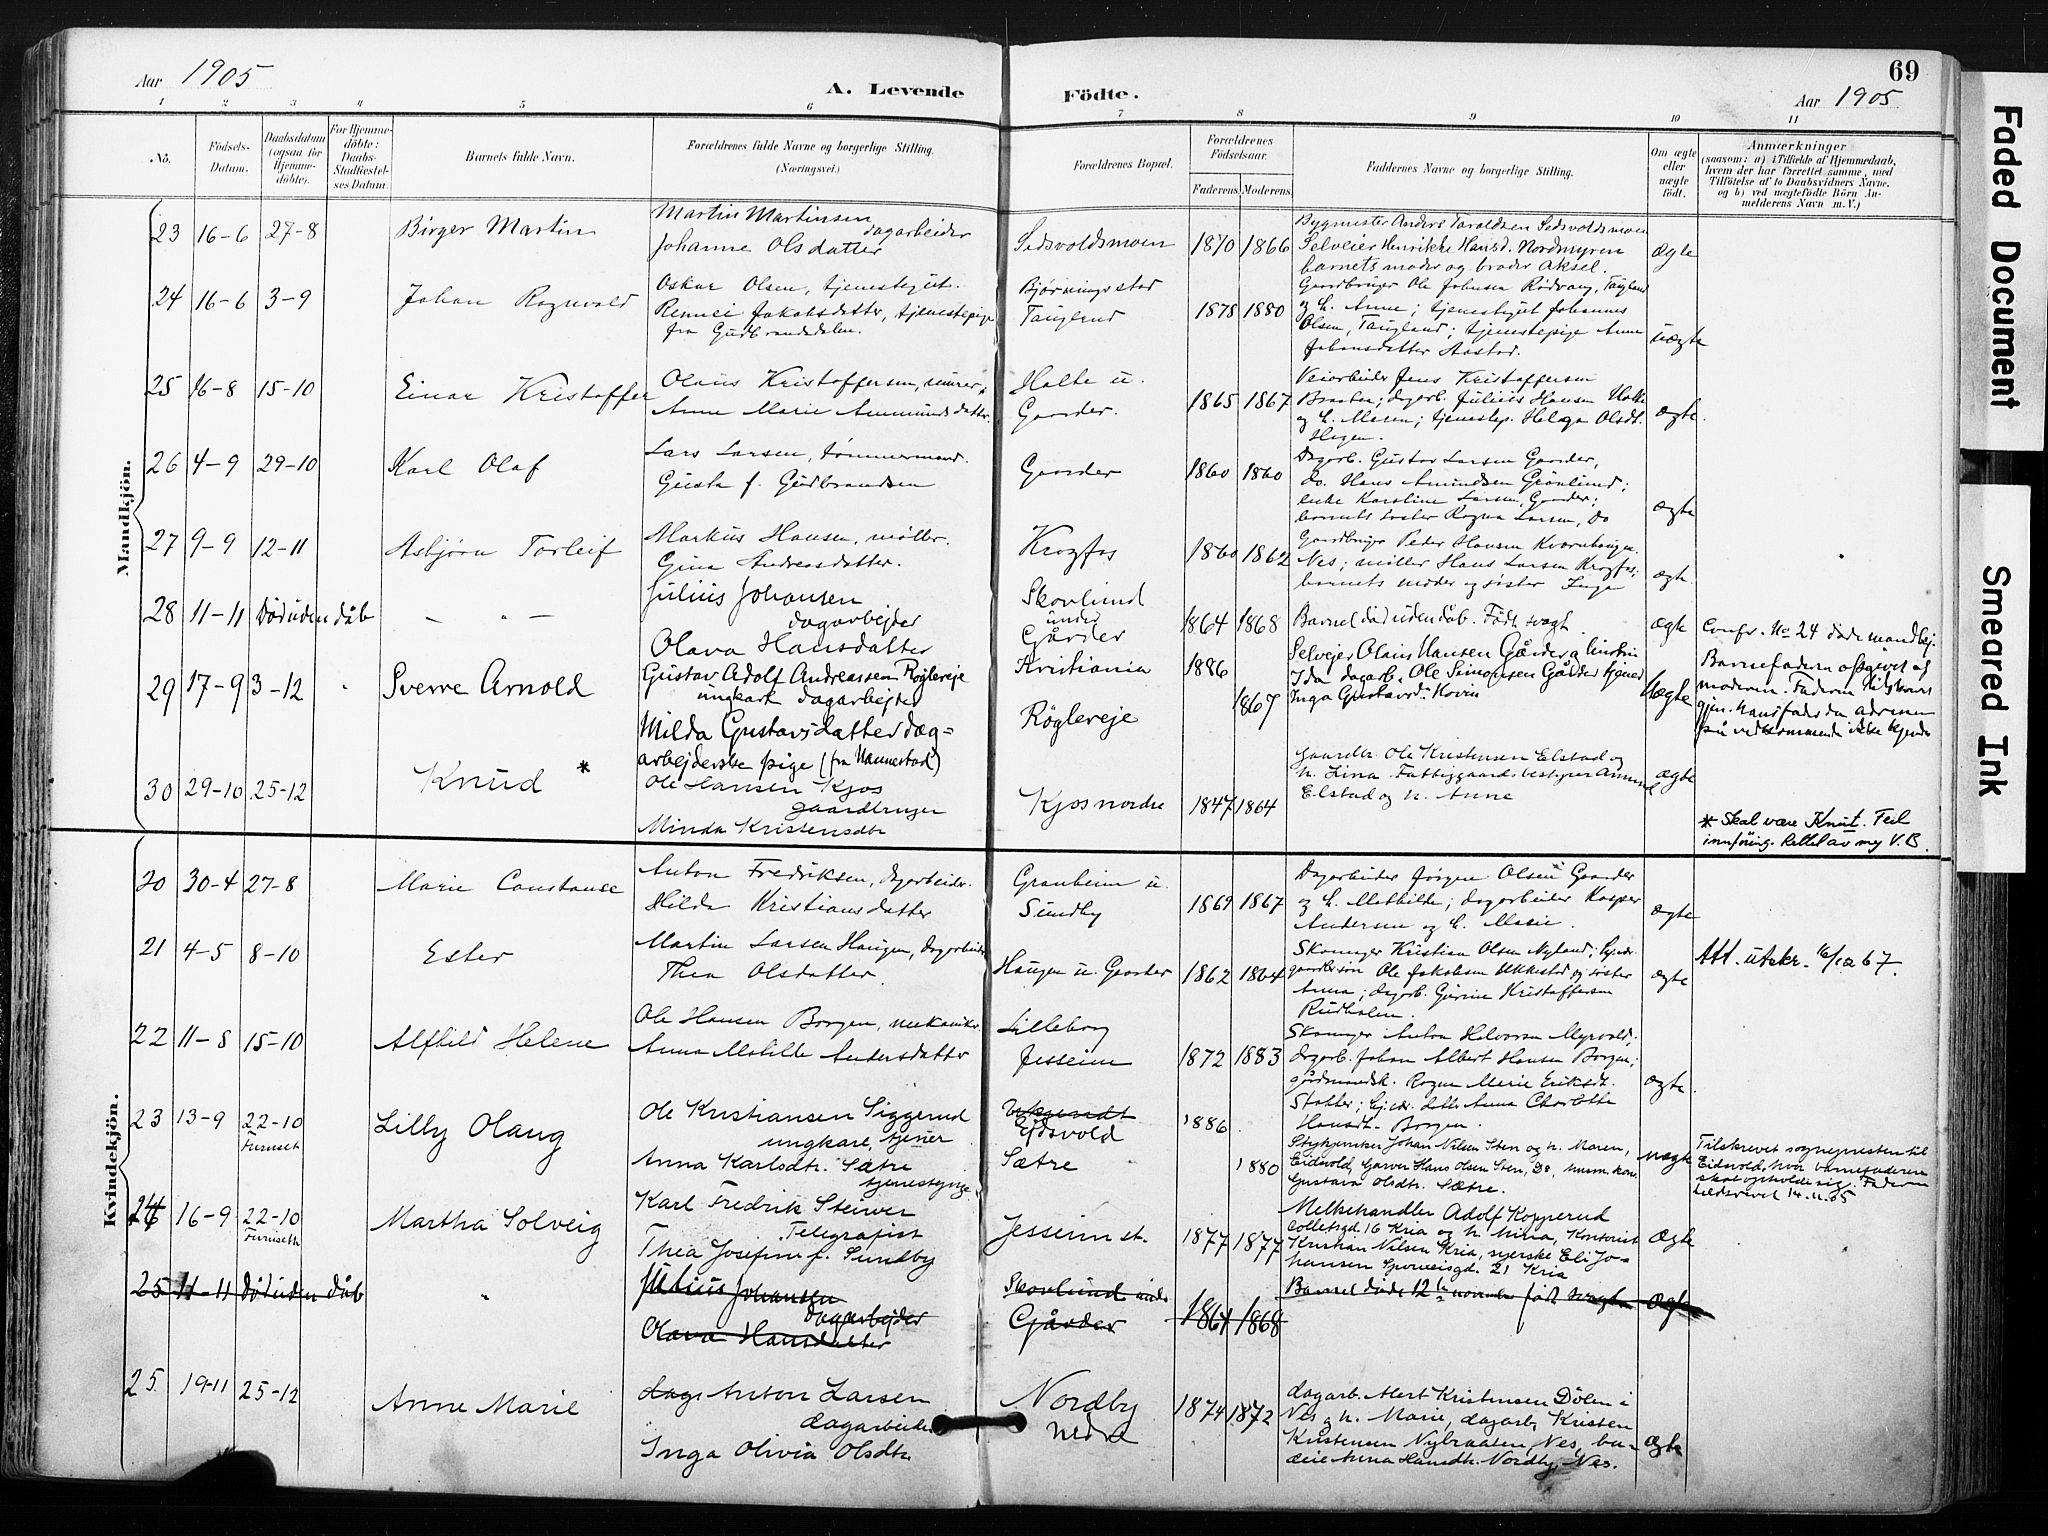 Aar 1905
A. Levende Fødte.
69
Aar 1905
1 2 3 4 5 6 7 8 9 10 11
No.
Fødsels-Datum.
Daabsdatum (ogsaa for Hjemmedøbte).
For Hjemmedøbte: Daabs-Stadfæstelses Datum.
Barnets fulde Navn.
Forældrenes fulde Navne og borgerlige Stilling.
(Næringsvei.)
Forældrenes Bopæl.
Forældrenes Fødselsaar.
Faderens. Moderens.
Faddernes Navne og borgerlige Stilling.
Om ægte eller uægte født.
Anmærkninger
(saasom: a) i Tilfælde af Hjemmedaab,
hvem der har forrettet samme, med
Tilføielse af to Daabsvidners Navne.
og b) ved uægtefødte Børn An-
melderens Navn m. V.)
Mandkjön.
23 16-6 27-8 Birger Martin
Martin Martinsen
dagarbeider
Johanne Olsdatter
Sedsvoldsmoen 1870 1866
Bygmester Anders Taraldsen Sedsvoldsmoen
Selveier Henrikke Hansd. Nordmyren
barnets moder og broder Aksel.
ægte
24 16-6 3-9 Johan Ragnvald
Oskar Olsen, tjenestegut.
Rennei Jakobsdatter, tjenestepige
fra Gudbrandsdalen.
Bjørningstad
Tauglund
1878 1880
Gaardbruger Ole Johnsen Rødvang, Tauglund
og h. Anne; tjenestegut Johannes
Olsen, Tauglund; tjenestepige Anne
Johansdatter Aastad.
uægte
25 16-8 15-10 Einar Kristoffer
Olaus Kristoffersen, murer,
Anne Marie Ammundsdatter.
Holte u.
Gaarder.
1865 1867
Veiarbeider Jens Kristoffersen
Braaten; dagarb. Julius Hansen Holte
og h. Maren; tjenestep. Helga Olsdt.
Hagen.
ægte.
26 4-9 29-10 Karl Olaf
Lars Larsen, tømmermand.
Gusta f. Gudbrandsen
Gaarder 1860 1860
Dagarb. Gustav Larsen Gaarder,
do. Hans Amundsen Grønlund;
enke Karoline Larsen, Gaarder;
barnets søster Ragna Larsen, Do
ægte
27 9-9 12-11 Asbjørn Torleif
Markus Hansen, møller.
Gina Andreasdatter.
Krogfos 1860 1862
Gaardbruger Peder Hansen Kvernhaugen
Nes; møller Hans Larsen Krogfos;
barnets moder og søster Inga
ægte.
28 11-11 Død uden dåb – " –
Julius Johansen
dagarbejder
Olava Hansdatter
Skovlund
under
Gårder
1864 1868
Barnet død uden dåb. Født svagt.
ægte
Confr. No 24 døde mandkj.
29 17-9 3-12 Sverre Arnold
Gustav Adolf Andreassen Røgleveje
ungkarl dagarbejder
Milda Gustavsdatter dag=
arbejderske pige (fra Nannestad)
Kristiania 1886
Røgleveje 1867
Selvejer Olaus Hansen Gårder og hustru
Ida dagarb. Ole Simonsen Gårder tjened
Inga Gustavsd. Hovin
Uægte
Barnefaderen opgivet af
moderen.
30 29-10 25-12 Knud *
Ole Hansen Kjos
gaardbruger
Minda Kristensdtr
Kjos nordre 1847 1864
Gaardbr. Ole Kristensen Elstad og
h. Lina. Fattiggaardsbestyrer Ammund
Elstad og h. Anne
ægte
* Skal være Knut. Feil
innføring. Rettet av meg V.B.
Kvindekjön.
20 30-4 27-8 Marie Constance
Anton Fredriksen, dagarbeider.
Hilda Kristiansdatter
Granheim u.
Sundby
1869 1867
Dagarbeider Jørgen Olsen Gaarder
og h. Mathilte; dagarbeider Kasper
Andersen og h. Marie.
ægte
21 4-5 8-10 Ester
Martin Larsen Haugen, dagarbeider
Thea Olsdatter.
Haugen u. Gaarder 1862 1864
Skomager Kristian Olsen Nyland;
gaardbrsøn Ole Jakobsen Ukkestad og søster
Anna; dagarb. Gurine Kristoffersen
Rudholen.
ægte
Att. utskr. 6/12 67.
22 11-8 15-10 Alfhild Helene
Ole Hansen Borgen, mekaniker.
Anna Matille Andersdatter
Lilleborg
Jessheim
1872 1883
Skomager Anton Halvorsen Myrvold;
dagarb. Johan Albert Hansen Borgen;
gårdmandsk. Ragna Marie Eriksdt.
Statter; Anna Charlotte
Hansdt. Borgen.
ægte.
23 13-9 22-10
Furuset
Lilly Olaug
Ole Kristiansen Siggerud
ungkarl, tjener
Anna Karlsdtr. Sætre
tjenestepige
Eidsvold 1886
Sætre 1880
Stykjunker Johan Nilsen Sten og h. Maren,
Eidsvold, Garver Hans Olsen Sten, Do,
Gustava Olsdtr. Sætre.
uægte
Tilskrevet sognepresten til
Eidsvold, hvor barnefaderen
skal opholde sig. Faderen
tilskrevet 14-11-05
24 16-9 22-10
Furuseth
Martha Solveig
Karl Fredrik Steiwer
Telegrafist
Thea Josefine f. Sundby
Jessheim st. 1877 1877
Melkehandler Adolf Kopperud
Colletsgd. 16 Kria og h. Mina, Kontorist
Kristian Nilsen Kria, syerske Eli Jo-
hansen Sporveisgd. 21 Kria
ægte
25 11-11 Død uden dåb "
Julius Johansen
dagarbejder
Olava Hansdatter
Skovlund under
Gårder
1864 1868
Barnet døde 12te november født svagt
ægte
25. 19-11 25-12 Anne Marie
dag. Anton Larsen
dagarbeider
Inga Olivia Olsdtr.
Nordby
nedre
1874 1872
dagarb. Mert Kristensen Dølen i
Nes og h. Marie, dagarb. Kristen
Kristensen Nybraaten, Nes, bu-
deie Anna Hansdtr. Nordby, Nes.
ægte
Faded Document
Smeared Ink